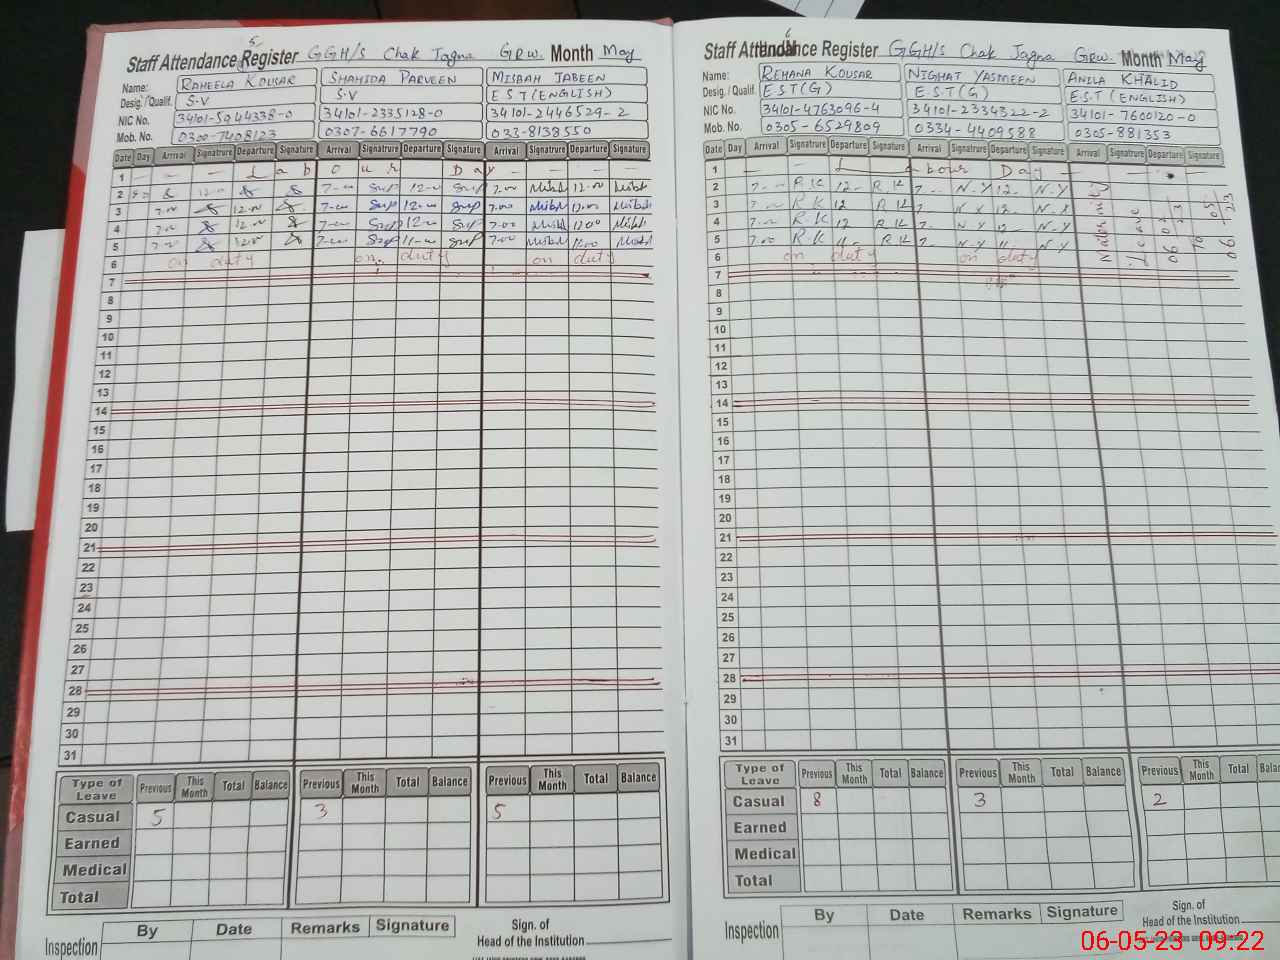 5
Staff Attendance Register GGH/S Chak Jagna Grw. Month May
Name: RAHEELA KOUSAR SHAHIDA PARVEEN MISBAH JABEEN
Desig./Qualif. S.V S.V E S T (ENGLISH)
NIC No. 34101-5044338-0 34101-2335128-0 34101-2446529-2
Mob. No. 0300-7408123 0307-6617790 033-8138550
Date Day Arrival Signature Departure Signature Arrival Signature Departure Signature Arrival Signature Departure Signature
1 Labour Day
2 12.00 7-00 12-00 7.00 12.00
3 7.00 12.00 7-00 12-00 7.00 12.00
4 7.00 12.00 7-00 12-00 7.00 12.00
5 7.00 7-00 11-00 7.00
6 on duty on duty on duty
7
8
9
10
11
12
13
14
15
16
17
18
19
20
21
22
23
24
25
26
27
28
29
30
31
Type of Leave Previous This Month Total Balance Previous This Month Total Balance Previous This Month Total Balance
Casual 5 3 5
Earned
Medical
Total
Inspection By Date Remarks Signature Sign. of Head of the Institution
6
Staff Attendance Register GGH/S Chak Jagna Grw. Month May
Name: REHANA KOUSAR NIGHAT YASMEEN ANILA KHALID
Desig./Qualif. E.S.T(G) E.S.T(G) E.S.T (ENGLISH)
NIC No. 34101-4763096-4 34101-2334322-2 34101-7600120-0
Mob. No. 0305-6529809 0334-4409588 0305-881353
Date Day Arrival Signature Departure Signature Arrival Signature Departure Signature Arrival Signature Departure Signature
1 Labour Day
2 7-00 R.K 12- R.K 7- N.Y 12- N.Y
3 7-00 R.K 12 R.K 7- N.Y 12- N.Y
4 7-00 R.K 12 R.K 7- N.Y 12- N.Y
5 7.00 R.K 11- R.K 7- N.Y 11- N.Y
6 on duty on duty
Maternity
Leave
7
8
9
10
11
12
13
14
15
16
17
18
19
20
21
22
23
24
25
26
27
28
29
30
31
Type of Leave Previous This Month Total Balance Previous This Month Total Balance Previous This Month Total
Casual 8 3 2
Earned
Medical
Total
Inspection By Date Remarks Signature Sign. of Head of the Institution
06-05-23 09:22